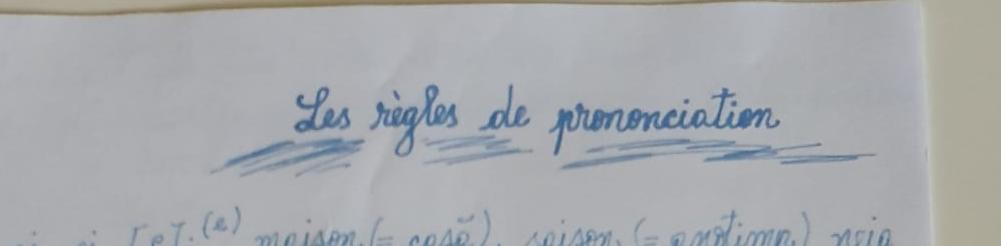 Les règles de prononciation
[e]. (e) maison (= casă), saison (= anotimp)